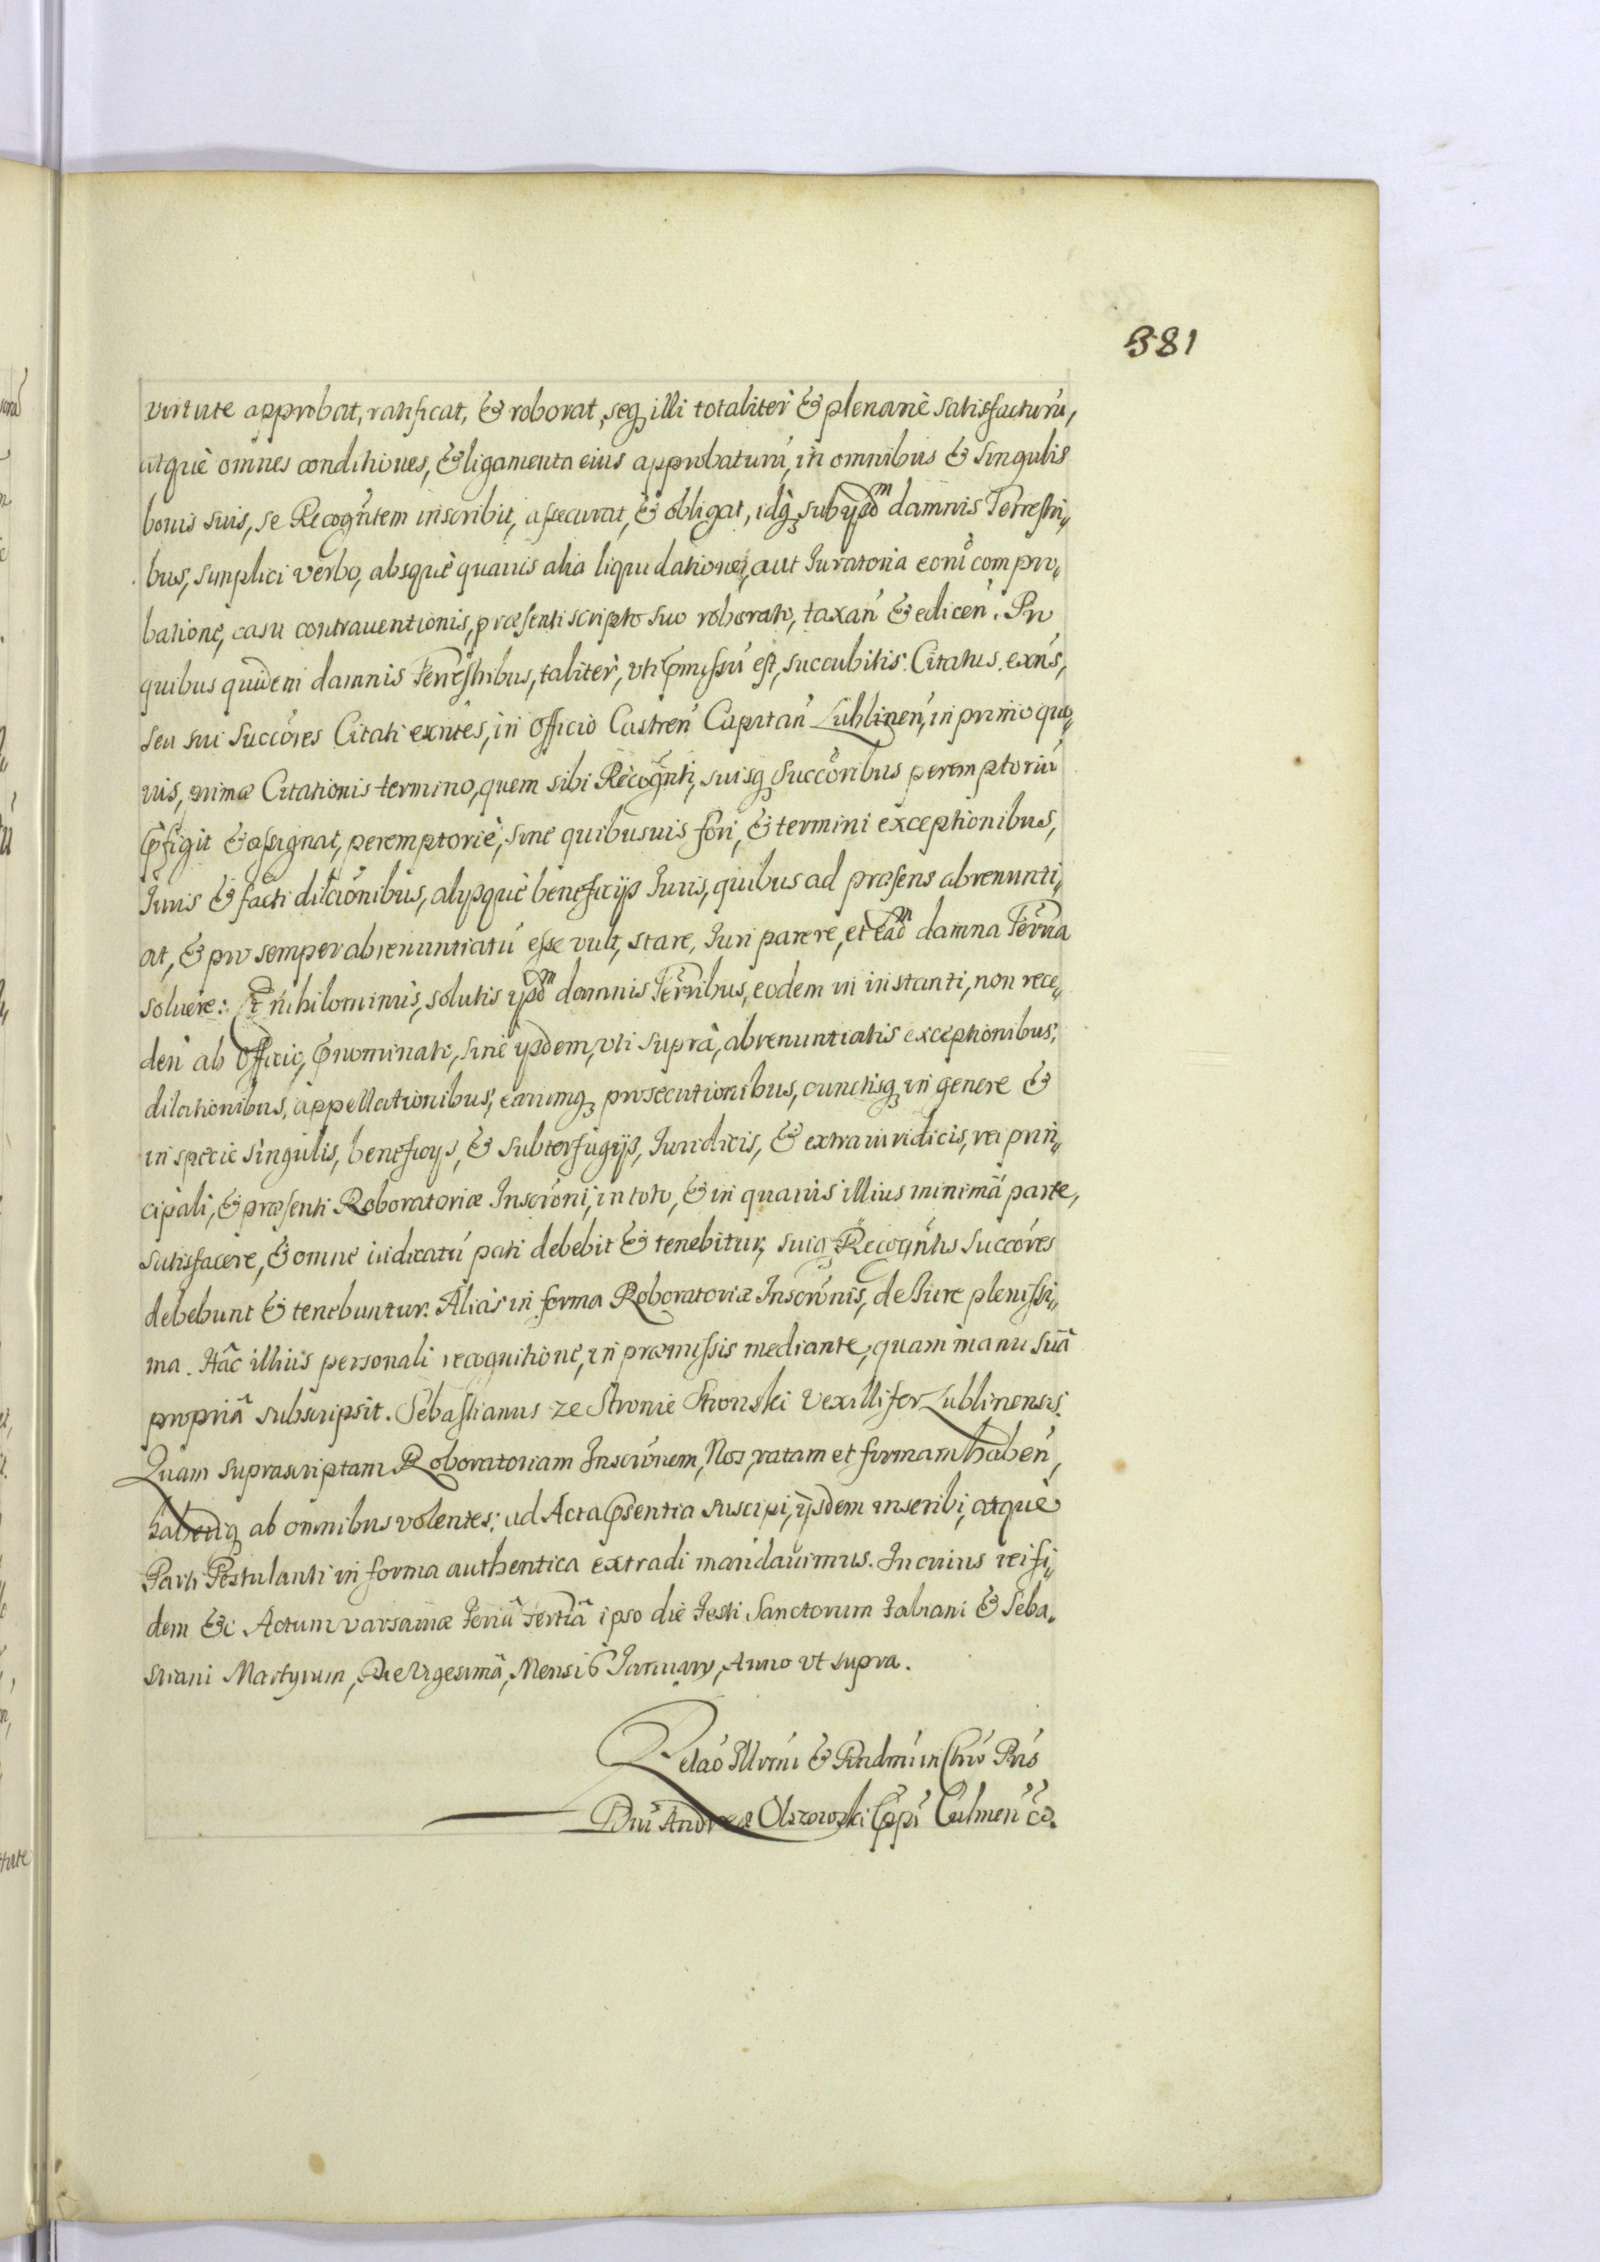 381
virtute approbat, ratificat, & roborat, seq illi totaliter & plenariè satisfacturũ,
atquè omnes conditiones, & ligamenta eius approbaturũ, in omnibus & singulis
bonis suis, se Recogñtem inscribit, assecurat, & obligat, idq sub ijsdm damnis Terrestri„
bus, simplici verbo, absquè quavis alia liquidatione, aut Iuratoria eorũ compro„
batione, casu contraventionis, præsenti scripto suo roborato, taxań & edicen. Pro
quibus quidem damnis Terrestribus, taliter, vti pmissũ est, succubitis. Citatus exñs,
seu sui Succõres Citati exñtes, in Officio Castreń Capitań Lublineń, in primo qua„
vis, primæ Citationis termino, quem sibi Recogñti, suisq Succõribus peremptoriũ
pfigit & assignat, peremptoriè, sine quibusuis fori, & termini exceptionibus,
Iuris & facti dilãonibus, alijsquè beneficijs Iuris, quibus ad præsens abrenunti„
at, & pro semper abrenuntiatũ esse vult, stare, Iuri parere, et eadm damna Terr̃ia
soluere: Et nihilominus, solutis ijsdm damnis Terr̃ibus, eodem in instanti, non rece„
deń ab Officio, pnominati, sine ijsdem, vti suprà, abrenuntiatis exceptionibus,
dilationibus, appellationibus, earumq prosecutionibus, cunctisq in genere &
in specie singulis, beneficijs, & subterfugijs, Iuridicis, & extraiuridicis, rei prin„
cipali, & præsenti Roboratoriæ Inscrõni, in toto, & in quavis illius minimâ parte,
satisfacere, & omne iudicatũ pati debebit & tenebitur, suiq Recogñtis Succõres
debebunt & tenebuntur. Aliàs in forma Roboratoriæ Inscrõnis, de Iure plenissi„
ma. Hâc illius personali recognitione, in præmissis mediante, quam manu suâ
propriâ subscripsit. Sebastianus ze Stronie Stronski Vexillifer Lublinensis.
Quam suprascriptam Roboratoriam Inscrõnem, Nos, ratam et firmam habeń,
haberiq ab omnibus volentes, ad Acta psentia suscipi, ijsdem inscribi, atquè
Parti Postulanti in forma authentica extradi mandavimus. In cuius rei fi„
dem &c Actum varsaviæ Feriâ tertiâ ipso die Festi Sanctorum Fabiani & Seba„
stiani Martyrum, Die Vigesimâ, Mensis Ianuary, Anno vt supra.
Relaõ Illr̃mi & Rndmi in Chrõ Pr̃is
Dñi Andreæ Olszowski Epĩ Culmeń &.